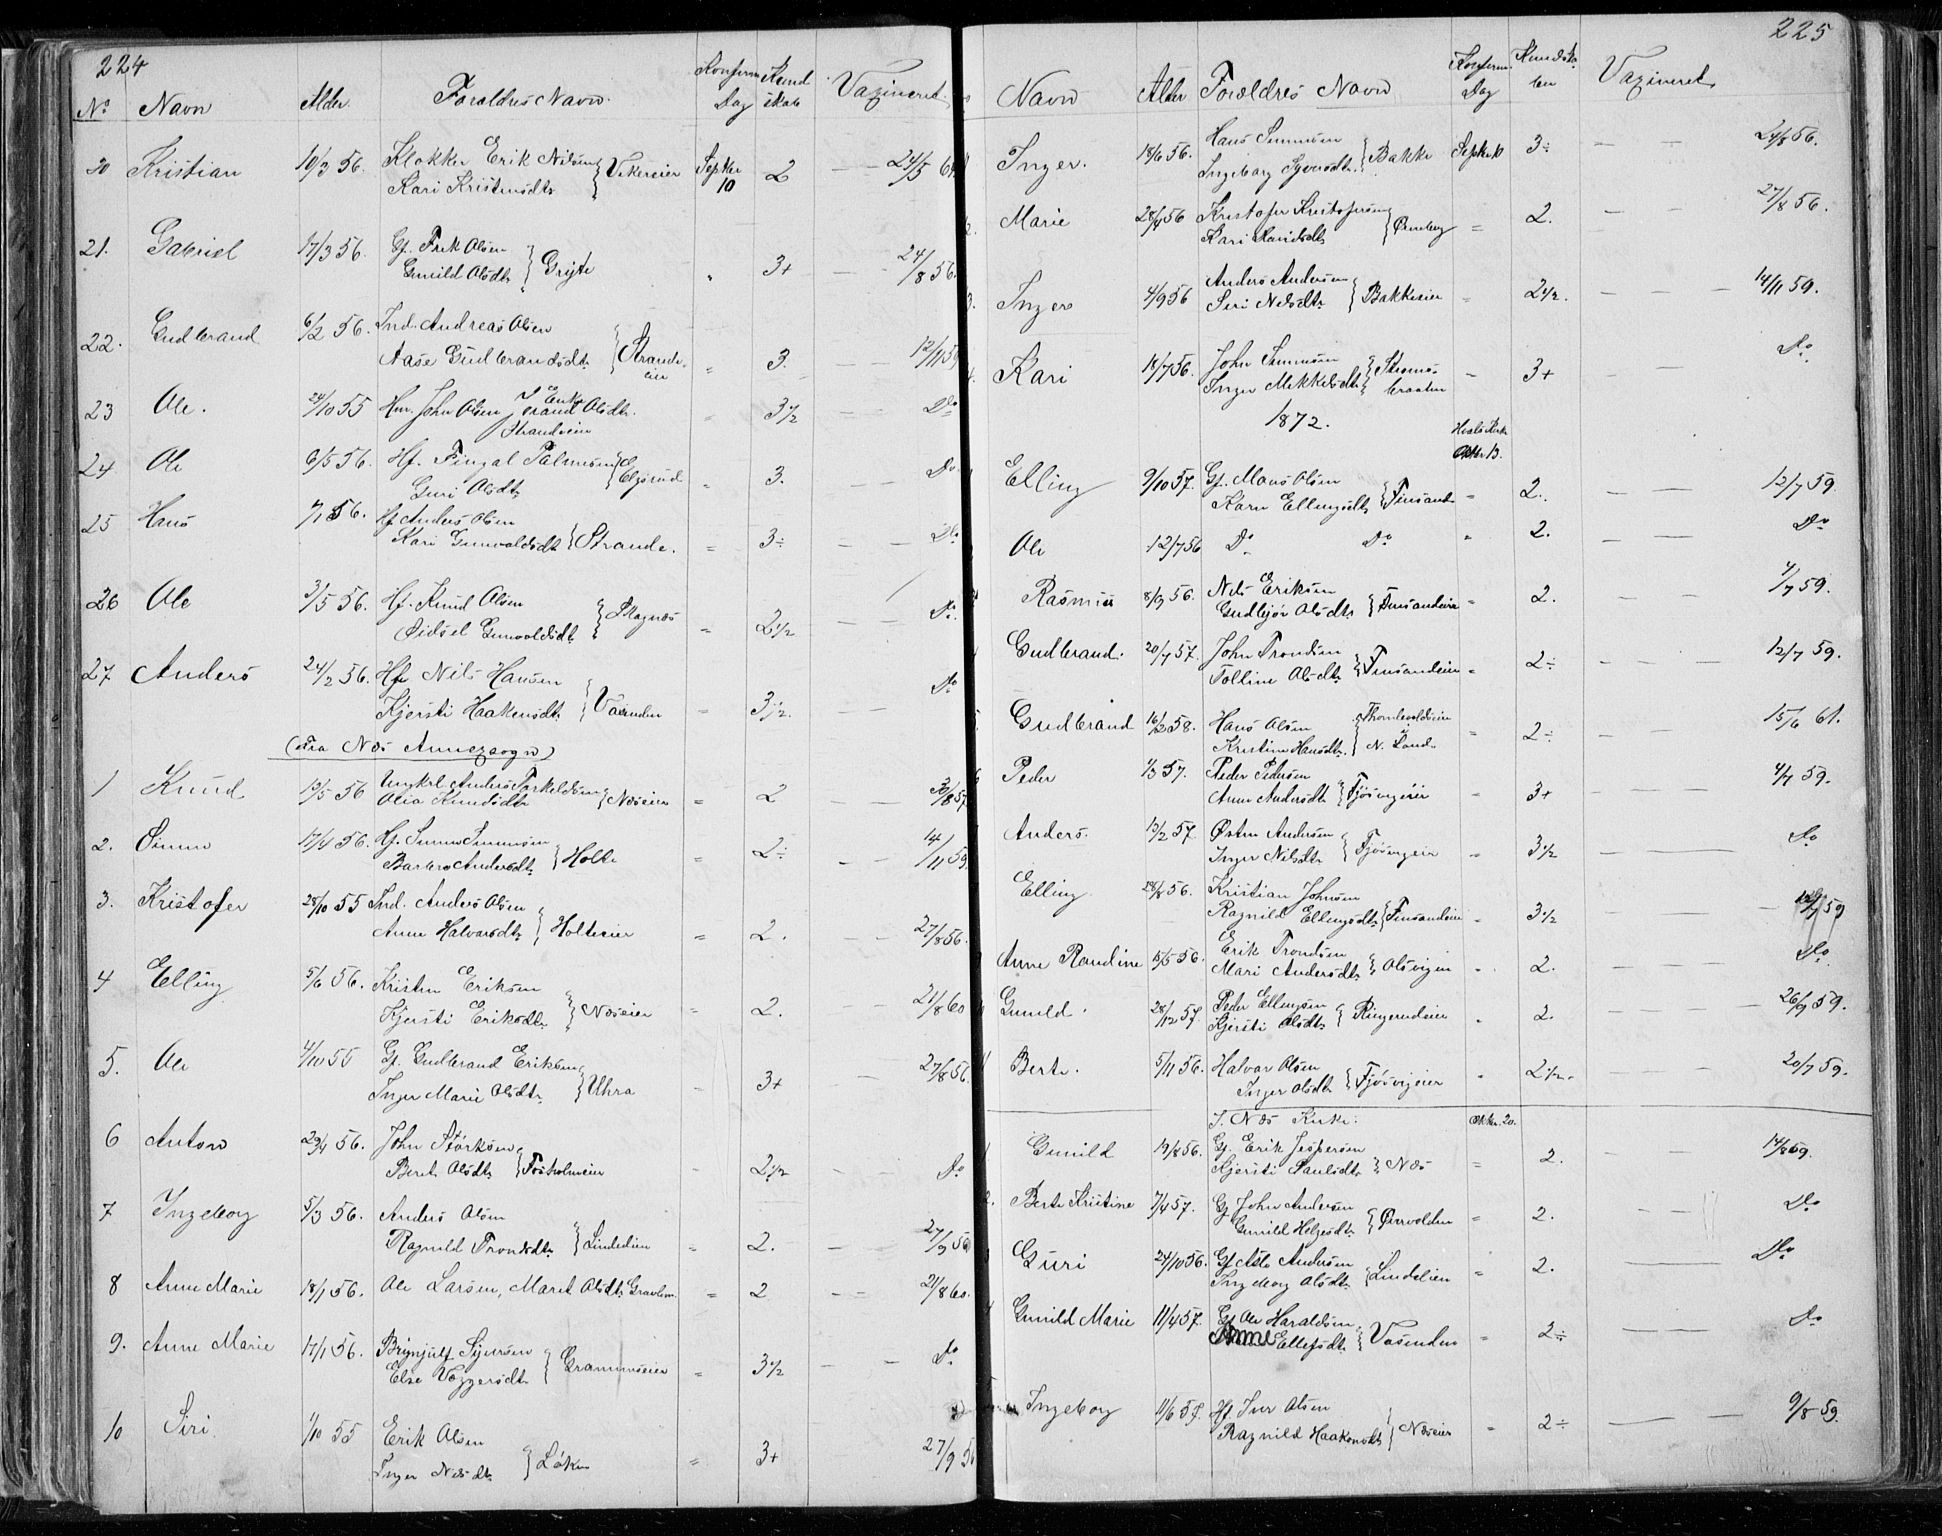 224
No Navn Alder Forældres Navn. Konfirm Dag Kundskab Vaxineret
20 Kristian 10/3 56. Klokker Erik Nilsen
Kari Kristensdtr } Vekereier Septbr 10 2 — 24/5 64
21. Gabriel 17/3 56. Gf. Erik Olsen
Gunild Olsdtr } Grijte " 3+ — 24/8 56.
22. Gudbrand 6/2 56. Ind. Andreas Olsen
Aase Gudbrandsdtr } Strande-
eie " 3. — 12/11 59
23 Ole. 24/10 55 Hm. John Olsen, Enke Jørand Olsdtr.
Strandeeie " 3 1/2 Do
24 Ole 6/5 56. Hf. Fingal Palmesen
Guri Olsdtr } Elgsrud " 3. — — Do.
25 Hans 7/1 56. Hf. Anders Olsen
Kari Gunvaldsdtr } Strande. = 3÷ — — Do.
26 Ole 3/5 56. Hf. Knud Olsen
Sidsel Gunvaldsdtr } Skagnæs = 2 1/2 — — Do.
27 Anders 24/2 56. Hf. Nils Hansen
Kjersti Haakensdtr } Vasenden = 3 1/2. — — Do
(Fra Næs Annexsogn)
1 Knud 13/5 56 Ungkrl. Anders Torkeldsen
Olia Knudsdtr } Næseier = 2 — 30/8 57.
2. Simen 17/4 56. Hf. Simen Simensen
Barbro Andersdtr } Holte = 2÷ — — 14/11 59.
3. Kristofer 28/10 55 Ind. Anders Olsen
Anne Halvorsdtr } Holteeier = 2. — — 27/8 56.
4 Elling 5/6 56. Kristen Eriksen
Kjersti Eriksdtr } Næseier = 2. — — 21/8 60
5. Ole 4/10 55 Gf. Gudbrand Eriksen
Inger Marie Olsdtr. } Uhra = 3+ — 27/8 56.
6 Anton 29/4 56. John Størksen
Berit Olsdtr } Fosholmeier = 2 1/2 Do
7 Ingeborg 5/3 56. Anders Olsen
Ragnild Trondsdtr. } Lindelien = 2. — 27/9 56
8 Anne Marie 18/1 56. Ole Larsen, Marit Olsdtr. Gravlien. = 2 — — 21/8 60.
9. Anne Marie 17/1 56. Brynjulf Sjursen
Else Viggersdtr } Grammseier = 3 1/2 — — Do
10 Siri 1/10 55 Erik Olsen
Inger Nilsdtr. } Løken = 3+ 27/9 5
225
Navn Alder Forældres Navn Konfirm. Dag Kundska-
ben Vaxineret
Inger. 18/6 56. Hans Simensen
Ingeborg Syversdtr. } Bakke Septbr 10 3÷ — — 24/8 56.
Marie 28/4 56 Kristofer Kristofersen
Kari Knudsdtr } = 2. — — 27/8 56.
Inger 4/9 56 Anders Andersen
Siri Nilsdtr } Bakkeeier = 2 1/2. — — — 14/11 59.
Kari 18/7 56. John Simensen
Inger Mikkelsdtr } Strøms-
braaten = 3+ Do.
1872.
Hevls Kirke
Oktbr. 13.
Elling 9/10 57. Gf. Mons Olsen
Kari Ellingsdtr } Finsand = 2. — — 12/7 59
Ole 12/7 56 Do Do " 2. — — Do
Rasmus 8/9 56. Nils Eriksen
Gudbjør Olsdtr. } Finsandeier = 2. — — 4/7 59.
Gudbrand. 20/7 57. John Trondsen
Tolline Olsdtr. } Finsandeier = 2÷ — — — 12/7 59.
Gudbrand 16/2 58. Hans Olsen
Kristine Hansdtr. } Thomlevoldseie
N. Land = 2÷ — — 15/6 61.
Peder 1/3 57. Peder Pedersen
Anne Andersdtr } Fjøsvigeier = 3+ — — 4/7 59.
Anders. 13/2 57. Østen Andersen
Inger Nilsdtr } Fjøsvigeier = 3 1/2 — — Do
Elling 28/8 56. Kristian Johnsen
Ragnild Ellingsdtr } Finsandeie = 3 1/2 — — 12/7 59
Anne Randine 15/5 56. Erik Trondsen
Mari Andersdtr } Olsvigen = 2. — — Do.
Gunild 28/12 57. Peder Ellingsen
Kjersti Olsdtr } Ringerudeier = 2. — — 26/9 59.
Berte. 5/11 56. Halvor Olsen
Inger Olsdtr } Fjøsvigeier = 2 1/2. — — 20/7 59.
I Næs Kirke. Oktbr. 20.
Gunild 19/8 56. Gf. Erik Jespersen
Kjersti Paulsdtr } Næs = 2. — 14/8 69.
2. Berte Kristine 7/4 57. Gf. John Andersen
Gunild Helgesdtr } = 2. — — Do
Guri 24/10 56. Gf. Asle Andersen
Ingeborg Olsdtr } Lindelien = 2. Do
4 Gunild Marie 11/4 57. Gf. Ole Haraldsen
Anne Ellefsdtr } Vasenden = 2÷ — Do
Ingeborg 11/6 57. Hf. Iver Olsen
Ragnild Haakonsdtr } Næseier = 2÷ — — 9/8 59.